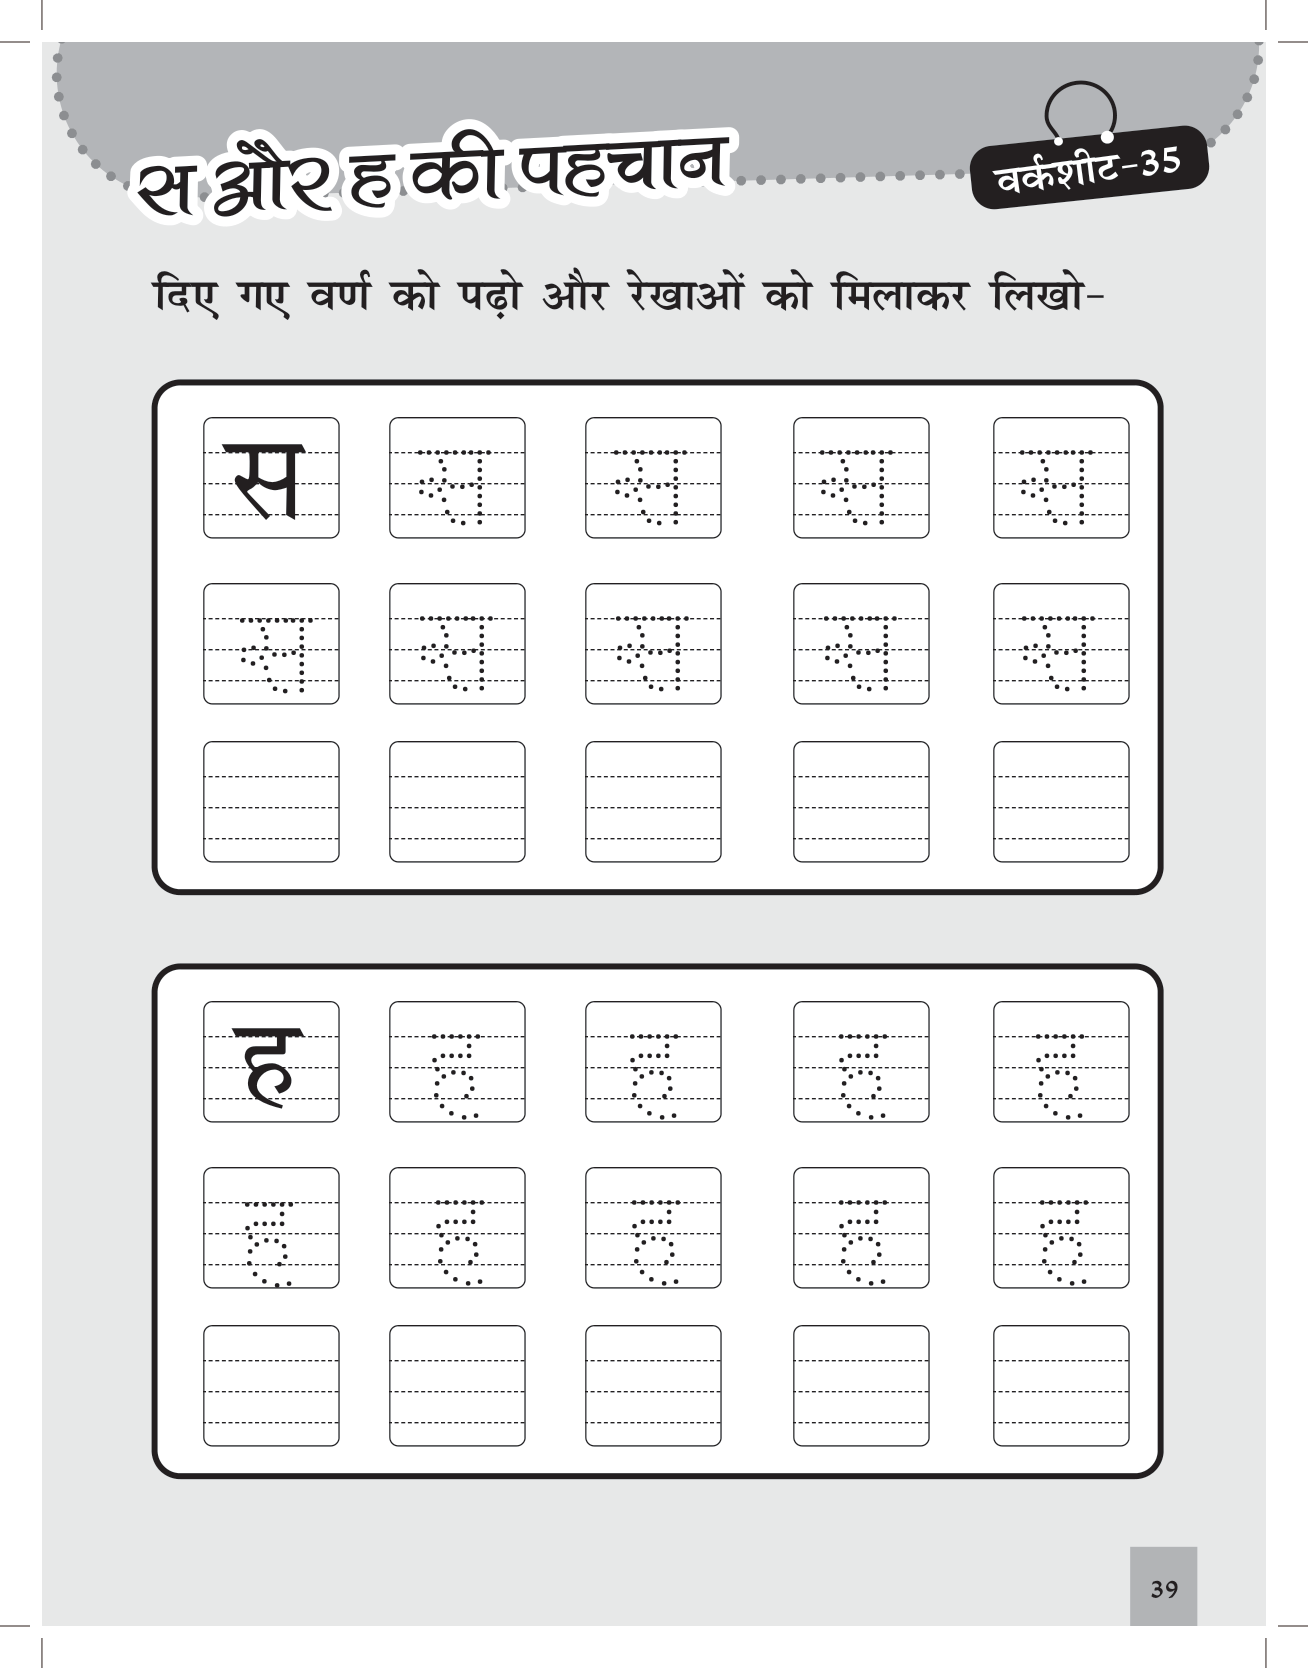 स और ह की पहचान
वर्कशीट-35
दिए गए वर्ण को पढ़ो और रेखाओं को मिलाकर लिखो-
स स स स स
स स स स स
ह ह ह ह ह
ह ह ह ह ह
39